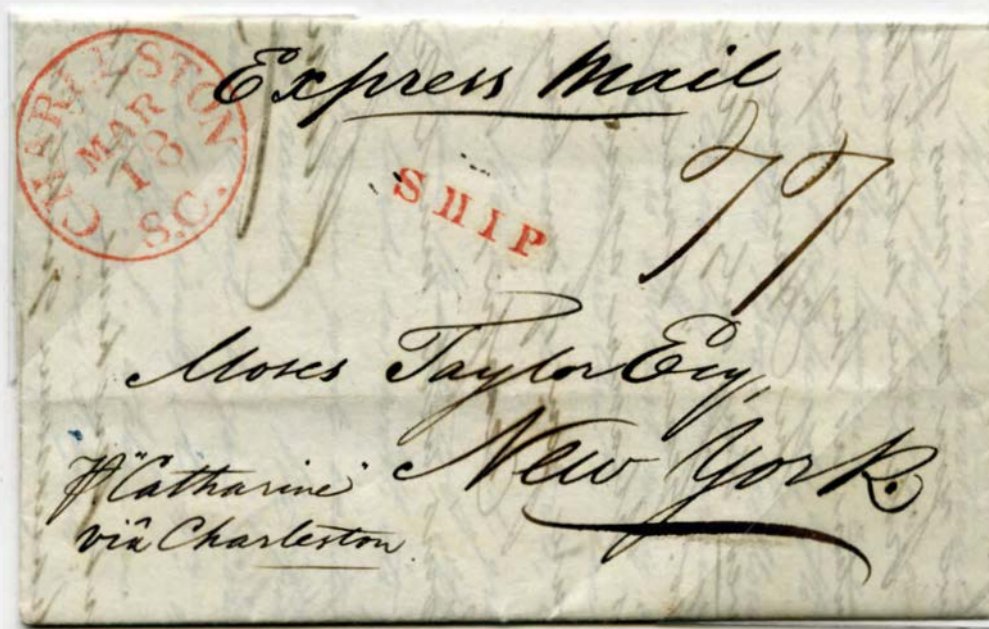 CHARLESTON
MAR
18
S.C.
Express Mail
SHIP
77
Moses Taylor Esq,
New York.
p "Catharine"
viâ Charleston